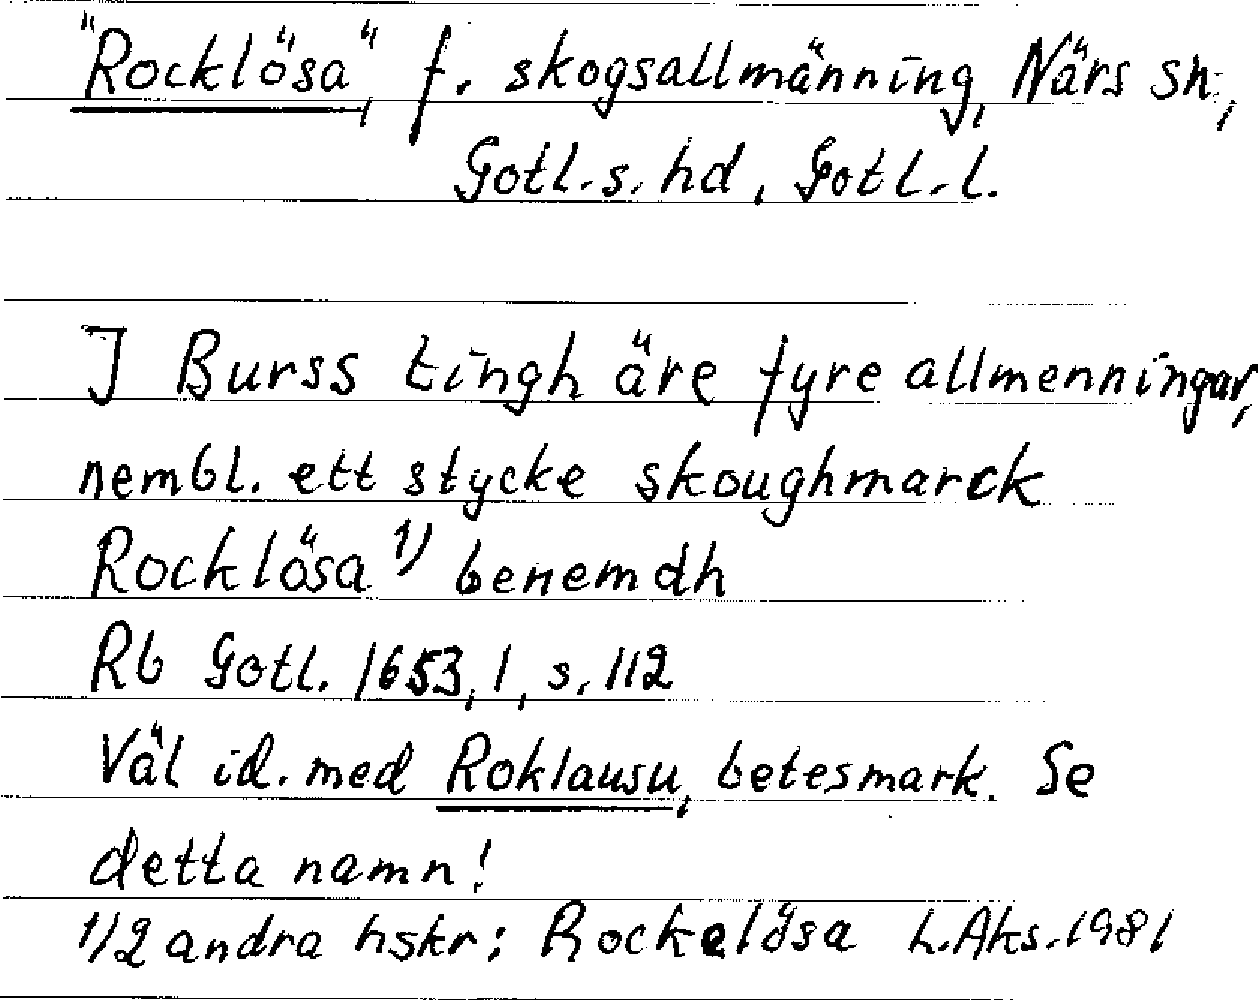 "Rocklösa", f. skogsallmänning, Närs sn.,
Gotl. s. hd, Gotl. l.
I Burss tingh äre fyre allmenningar,
nembl. ett stycke skoughmarck
Rocklösa 1) benemdh
Rb Gotl. 1653, 1, s. 112
Väl id. med Roklausu, betesmark. Se
detta namn!
1) 2 andra hskr: Rockelösa L. Aks. 1981